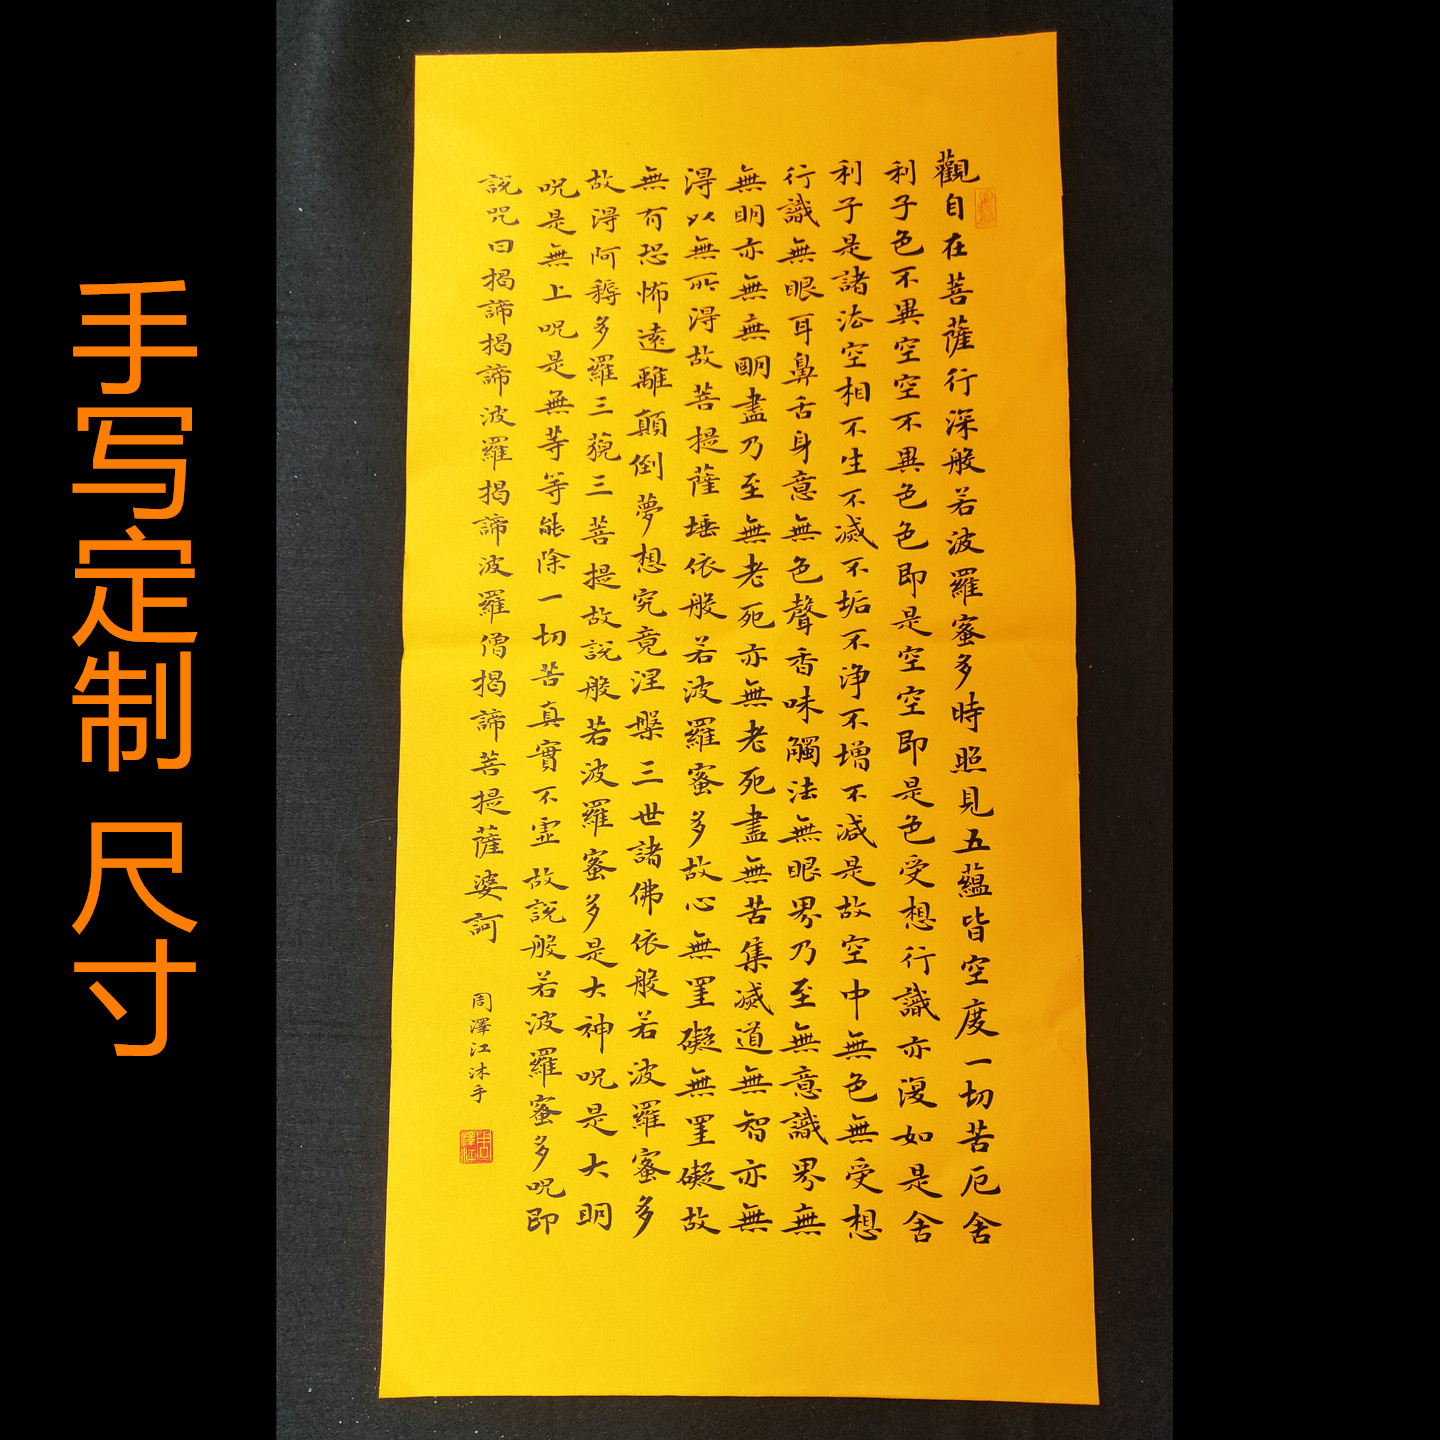 手写定制 尺寸
觀自在菩薩行深般若波羅蜜多時照見五蘊皆空度一切苦厄舍
利子色不異空空不異色色即是空空即是色受想行識亦復如是舍
利子是諸法空相不生不滅不垢不淨不增不減是故空中無色無受想
行識無眼耳鼻舌身意無色聲香味觸法無眼界乃至無意識界無
無明亦無無明盡乃至無老死亦無老死盡無苦集滅道無智亦無
得以無所得故菩提薩埵依般若波羅蜜多故心無罣礙無罣礙故
無有恐怖遠離顛倒夢想究竟涅槃三世諸佛依般若波羅蜜多
故得阿耨多羅三藐三菩提故說般若波羅蜜多是大神咒是大明
咒是無上咒是無等等能除一切苦真實不虛故說般若波羅蜜多咒即
說咒曰揭諦揭諦波羅揭諦波羅僧揭諦菩提薩婆訶
周澤江沐手
周澤江